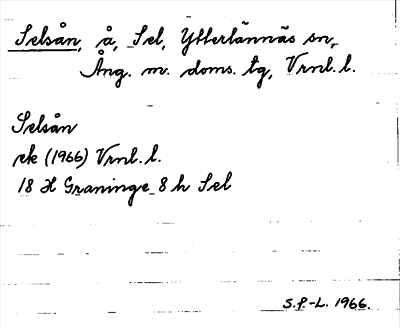 Selsån, å, Sel, Ytterlännäs sn,
Ång. m. doms. tg, Vrnl. l.
Selsån
ek (1966) Vrnl. l.
18 H Graninge 8 h Sel
S.F.-L. 1966.